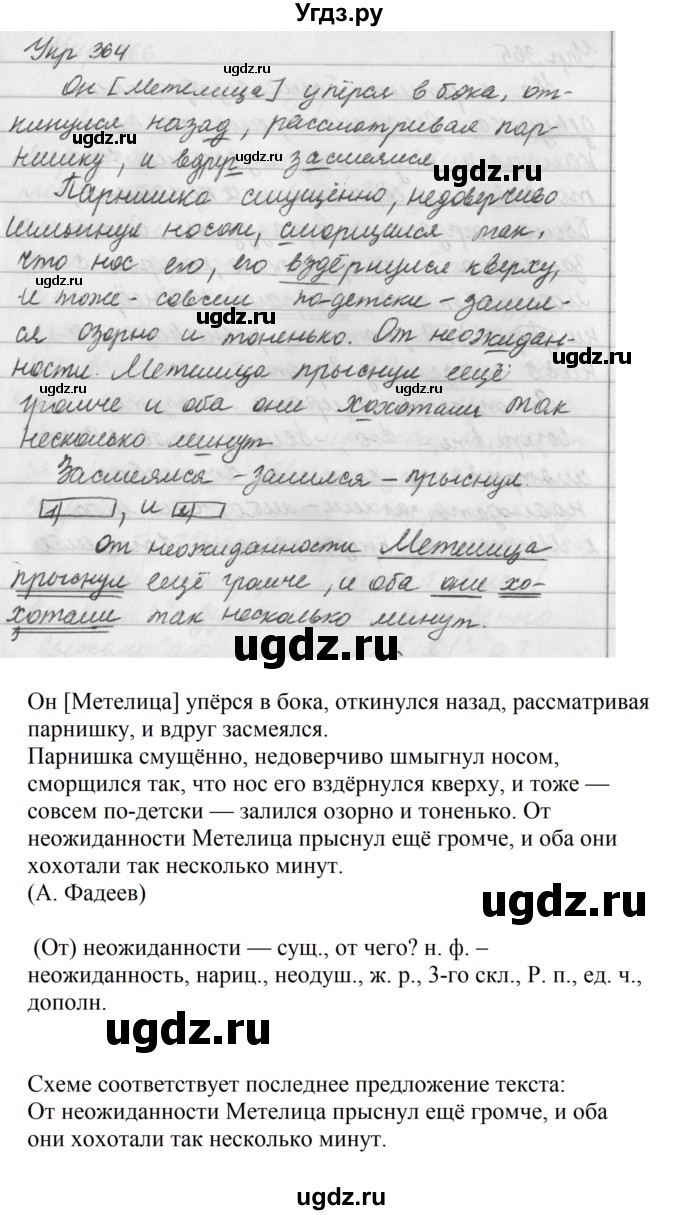 Угдз.ру
Упр 364
ugdz.ru
Он [Метелица] упёрся в бока, от-
ugdz.ru
кинулся назад, рассматривая пар-
ugdz.ru
нишку, и вдруг засмеялся.
ugdz.ru
ugdz.ru
Парнишка смущённо, недоверчиво
шмыгнул носом, сморщился так,
что нос его, его вздёрнулся кверху,
и тоже - совсем по-детски - залил-
ugdz.ru
ся озорно и тоненько. От неожидан-
ugdz.ru
ности Метелица прыснул ещё
ugdz.ru
ugdz.ru
громче и оба они хохотали так
несколько минут
Засмеялся - залился - прыснул
1) , и 2)
От неожиданности Метелица
прыснул ещё громче, и оба они хо-
хотали так несколько минут.
ugdz.ru
Он [Метелица] упёрся в бока, откинулся назад, рассматривая
парнишку, и вдруг засмеялся.
Парнишка смущённо, недоверчиво шмыгнул носом,
сморщился так, что нос его вздёрнулся кверху, и тоже —
совсем по-детски — залился озорно и тоненько. От
неожиданности Метелица прыснул ещё громче, и оба они
хохотали так несколько минут.
ugdz.ru
(А. Фадеев)
(От) неожиданности — сущ., от чего? н. ф. –
неожиданность, нариц., неодуш., ж. р., 3-го скл., Р. п., ед. ч.,
дополн.
ugdz.ru
Схеме соответствует последнее предложение текста:
От неожиданности Метелица прыснул ещё громче, и оба
они хохотали так несколько минут.
ugdz.ru
ugdz.ru